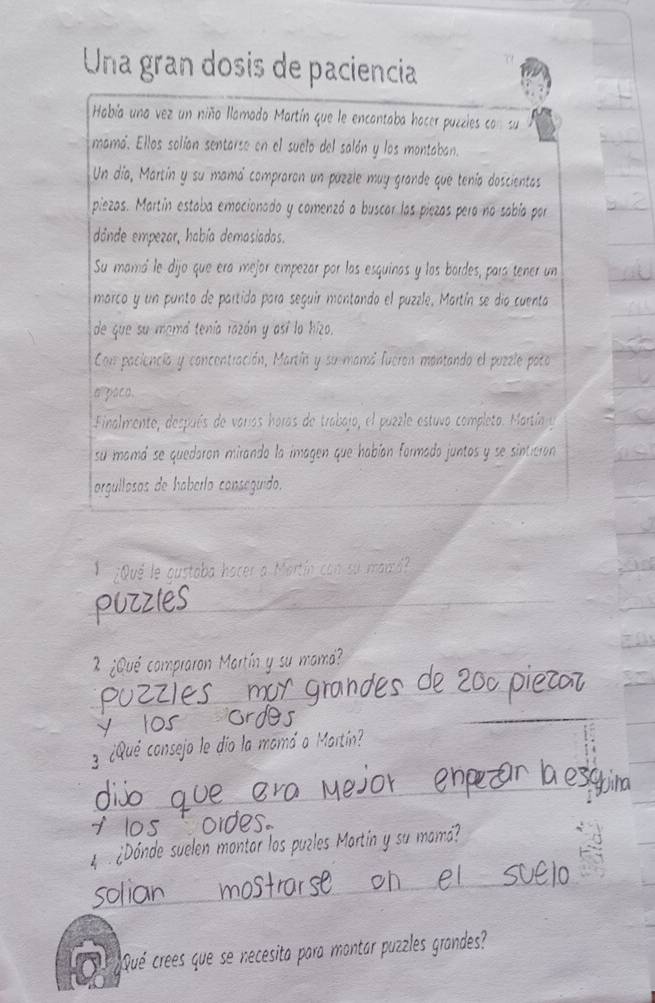 Una gran dosis de paciencia
Había una vez un niño llamado Martín que le encantaba hacer puzzles con su
mamá. Ellos solían sentarse en el suelo del salón y los montaban.
Un día, Martín y su mamá compraron un puzzle muy grande que tenía doscientas
piezas. Martín estaba emocionado y comenzó a buscar las piezas pero no sabía por
dónde empezar, había demasiadas.
Su mamá le dijo que era mejor empezar por las esquinas y los bordes, para tener un
marco y un punto de partida para seguir montando el puzzle. Martín se dio cuenta
de que su mamá tenía razón y así lo hizo.
Con paciencia y concentración, Martín y su mamá fueron montando el puzzle poco
a poco.
Finalmente, después de varias horas de trabajo, el puzzle estuvo completo. Martín y
su mamá se quedaron mirando la imagen que habían formado juntos y se sintieron
orgullosos de haberlo conseguido.
1 ¿Qué le gustaba hacer a Martín con su mamá?
puzzles
2 ¿Qué compraron Martín y su mamá?
puzzles moy grandes de 200 piezas
y los ordes
3 ¿Qué consejo le dio la mamá a Martín?
dijo que era mejor enpezar la esquina
y los ordes.
4 . ¿Dónde suelen montar los puzles Martín y su mamá?
solian mostrarse en el suelo
¿Qué crees que se necesita para montar puzzles grandes?